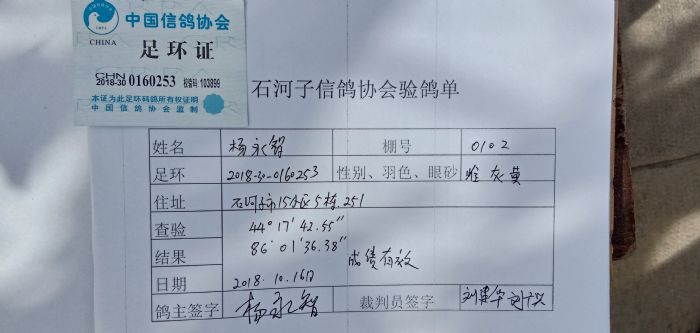 中国信鸽协会
CHINA
足环证
CHN
2018-30 0160253 校验码:103899
本证为此足环码鸽所有权证明
中国信鸽协会监制
石河子信鸽协会验鸽单
姓名 杨永智 棚号 0102
足环 2018-30-0160253 性别、羽色、眼砂 雌 灰 黄
住址 石河子市15小区5栋.251
查验 44°17'42.55"
结果 86°01'36.38" 成绩有效
日期 2018.10.16日
鸽主签字 杨永智 裁判员签字 刘建华